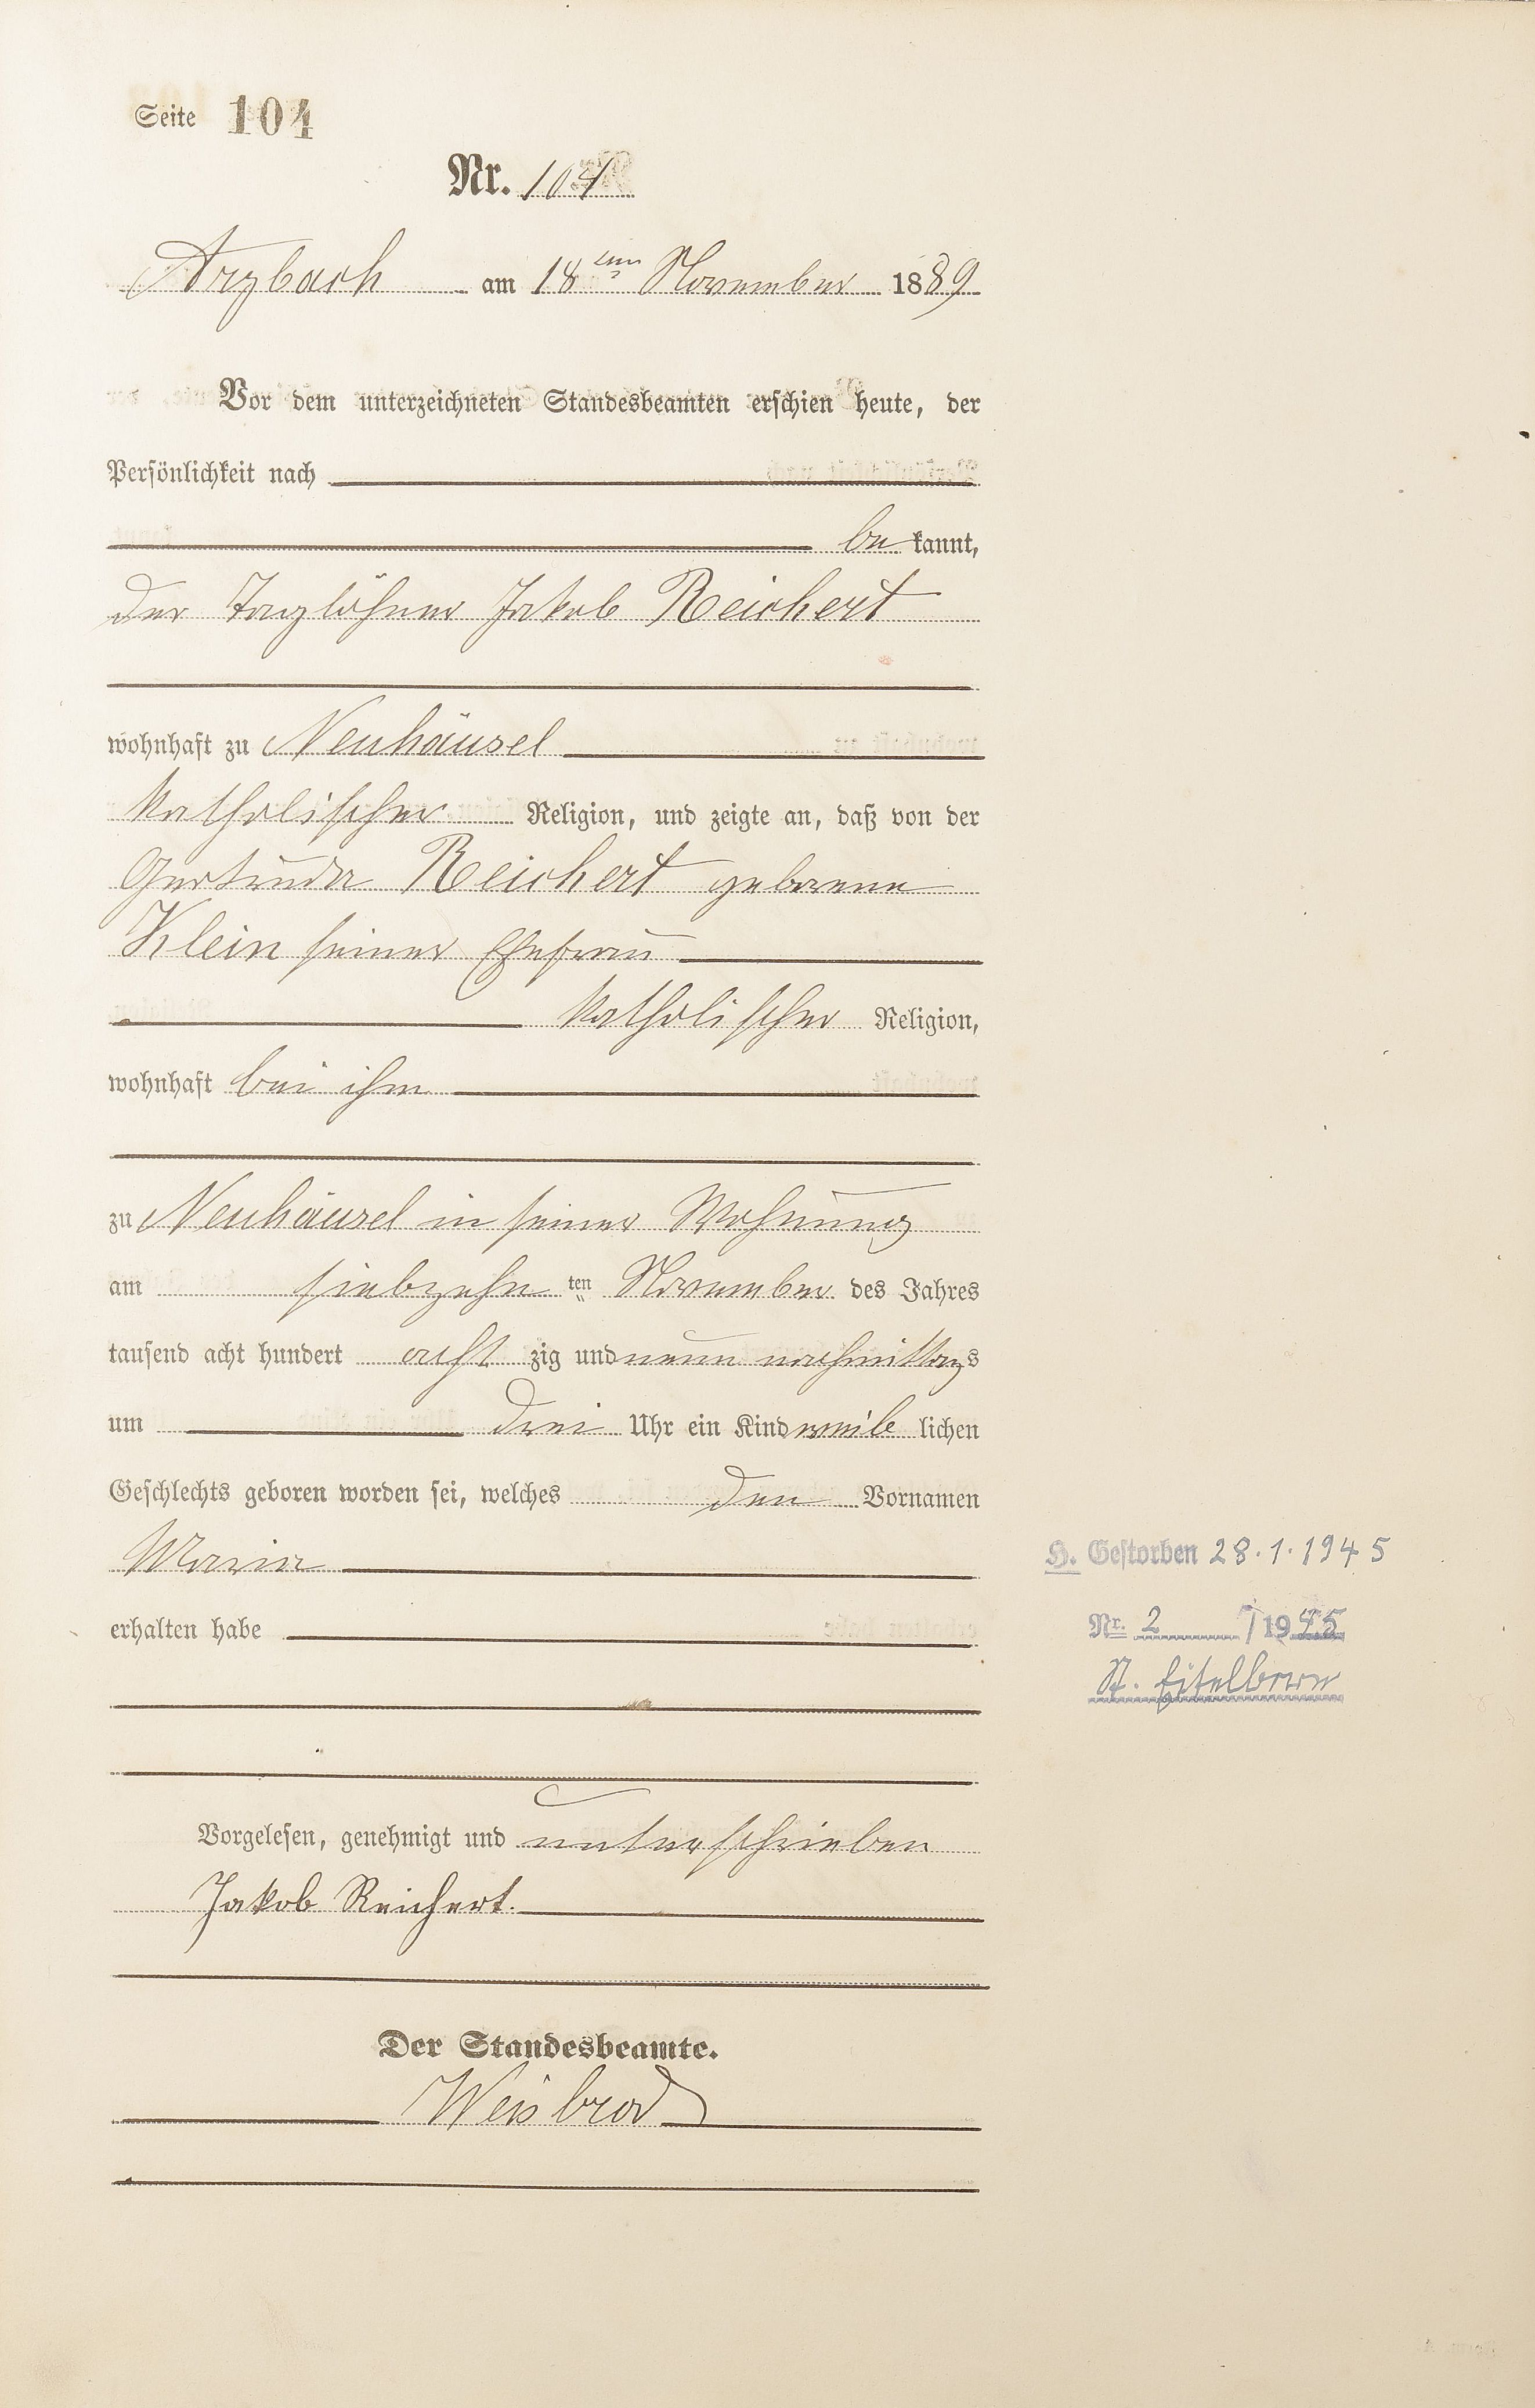 Seite 104
Nr. 104
Arzbach am 18ten November 1889
Vor dem unterzeichneten Standesbeamten erschien heute, der
Persönlichkeit nach
be kannt,
der Taglöhner Jakob Reichert
wohnhaft zu Neuhäusel
katholischer Religion, und zeigte an, daß von der
Gertruda Reichert geborene
Klein seiner Ehefrau
katholischer Religion,
wohnhaft bei ihm
zu Neuhäusel in seiner Wohnung
am siebzehn ten November des Jahres
tausend acht hundert acht zig und neun nachmittags
um drei Uhr ein Kind weib lichen
Geschlechts geboren worden sei, welches den Vornamen
Maria
erhalten habe
H. Gestorben 28.1.1945
Nr. 2 / 1945
St. Eitelborn
Vorgelesen, genehmigt und unterschrieben
Jakob Reichert.
Der Standesbeamte.
Weisbrod